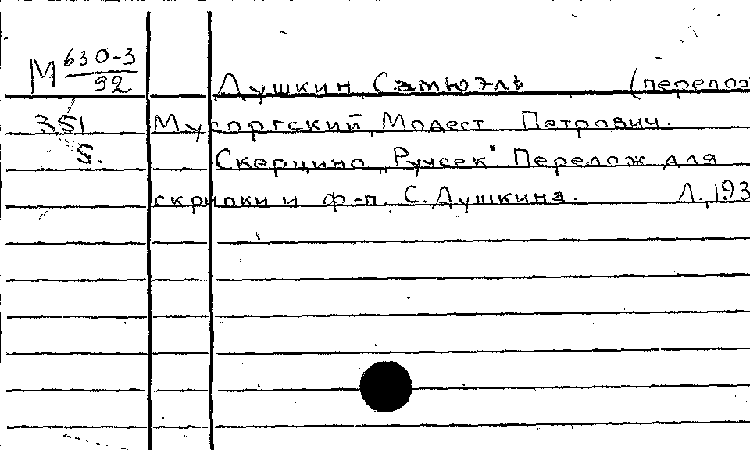 М 630-3/92
Душкин Самюэль (перелож
351 Мусоргский, Модест Петрович.
S. Скерцино "Ручеек" Перелож для
скрипки и ф-п. С. Душкина. Л., 193